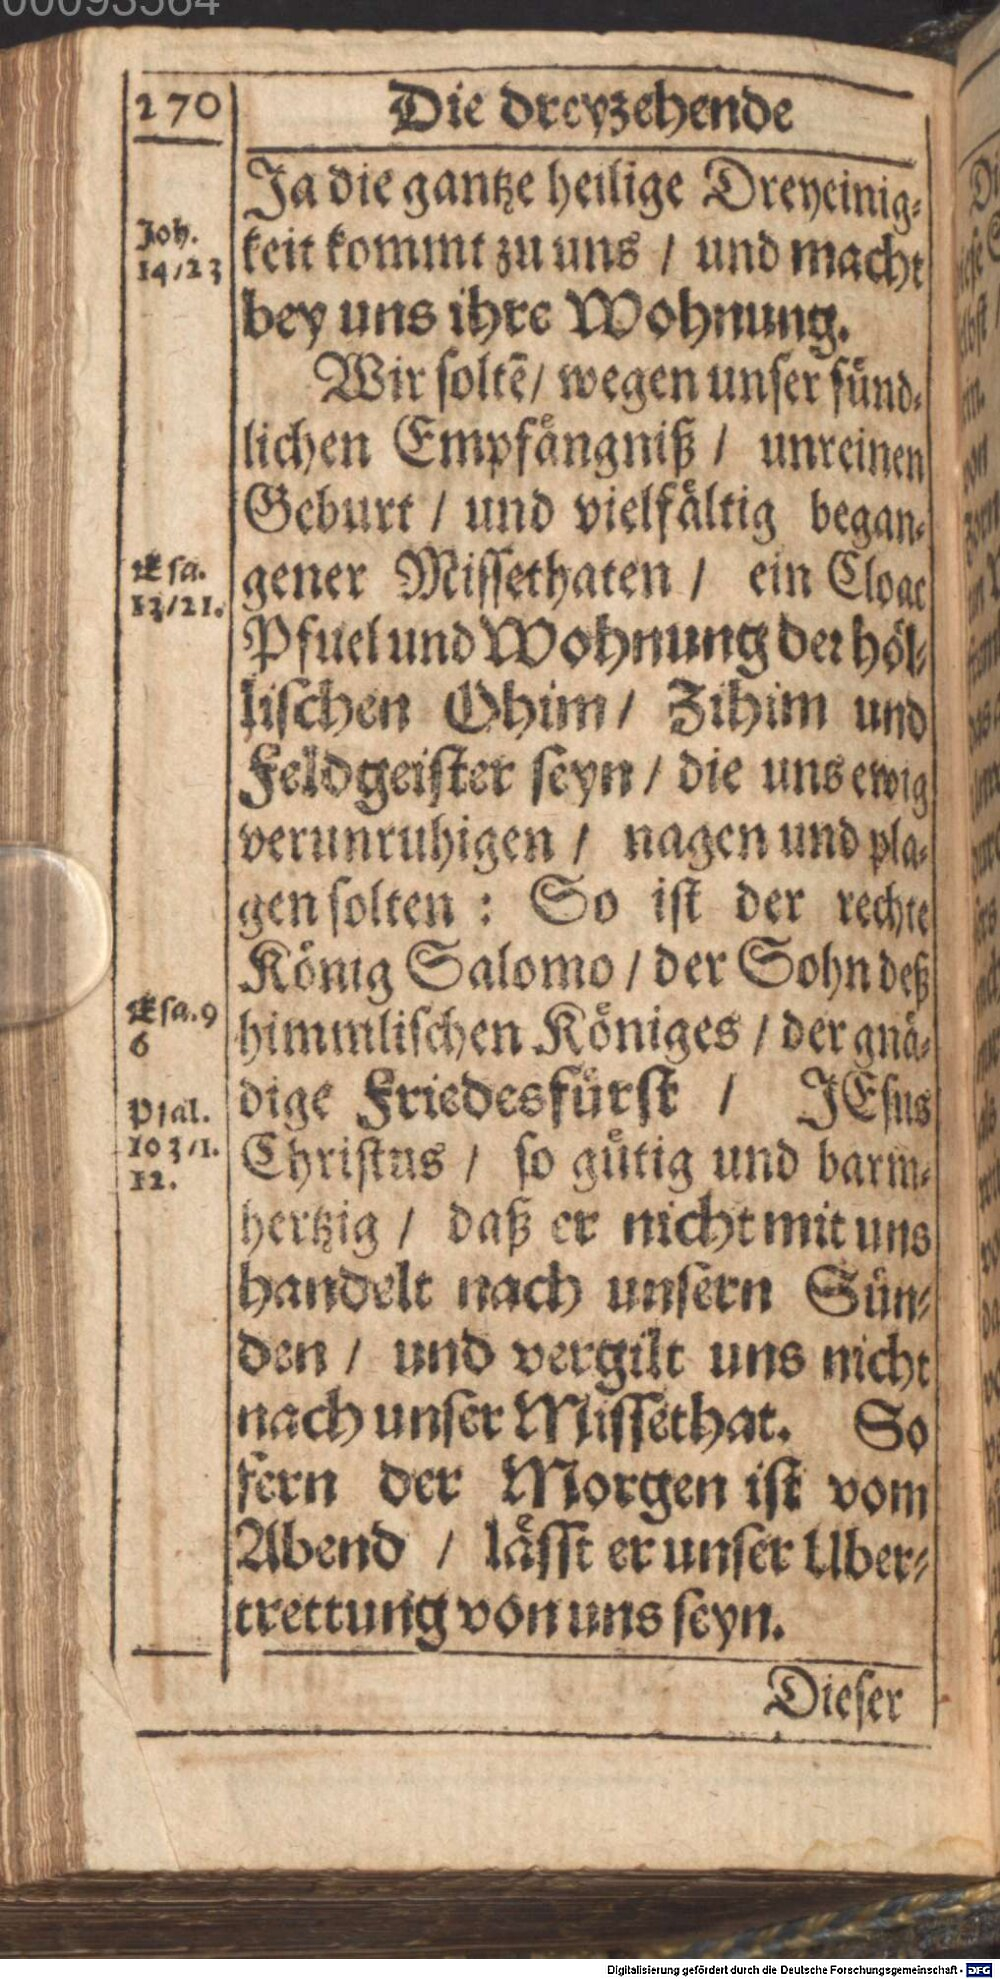 270
Die dreyzehende
Ja die gantze heilige Dreyeinig-
keit kommt zu uns / und macht
bey uns ihre Wohnung.
Wir soltē / wegen unser sünd-
lichen Empfängniß / unreinen
Geburt / und vielfältig began-
gener Missethaten / ein Cloac
Pfuel und Wohnung der höl-
lischen Ohim / Zihim und
Feldgeister seyn / die uns ewig
verunruhigen / nagen und pla-
gen solten : So ist der rechte
König Salomo / der Sohn deß
himmlischen Königes / der gnä-
dige Friedesfürst / JEsus
Christus / so gütig und barm-
hertzig / daß er nicht mit uns
handelt nach unsern Sün-
den / und vergilt uns nicht
nach unser Missethat. So
fern der Morgen ist vom
Abend / lässt er unser Uber-
trettung von uns seyn.
Dieser
Joh.
14/23
Esa.
13/21.
Esa.9
6
Psal.
103/1.
12.
00093564
Digitalisierung gefördert durch die Deutsche Forschungsgemeinschaft - DFG